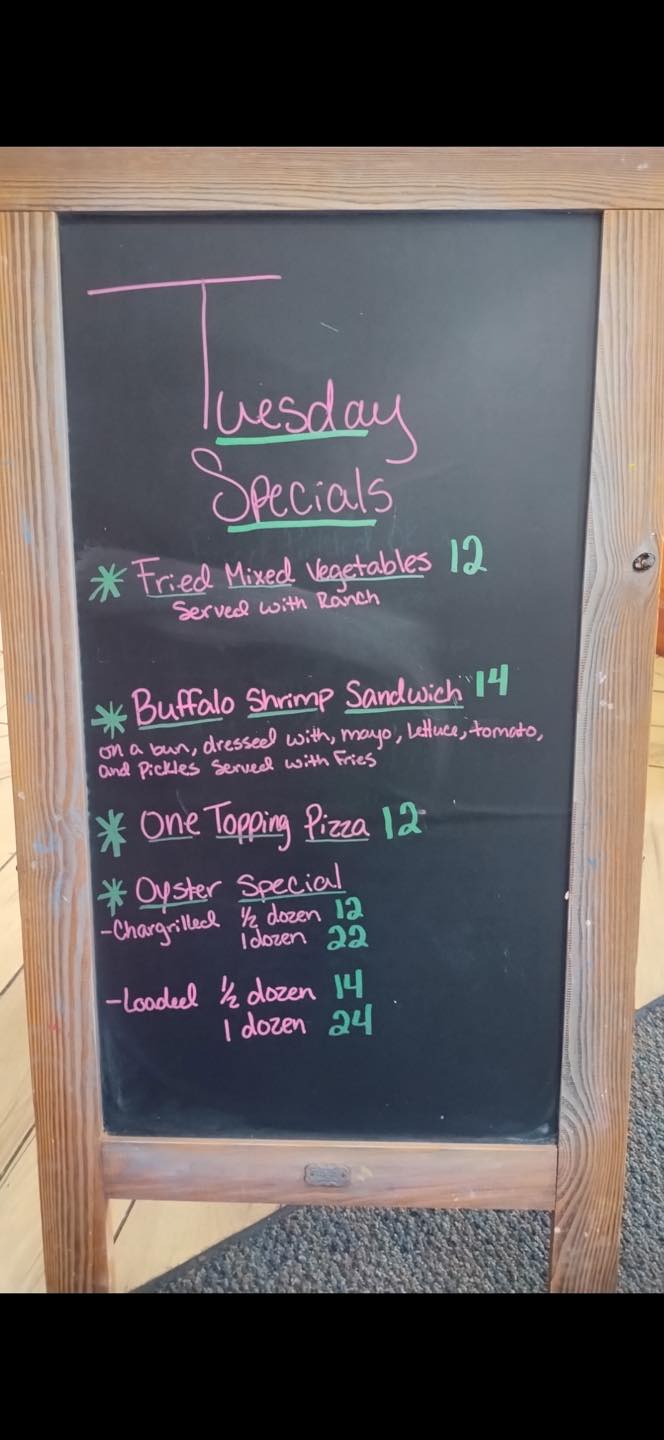 Tuesday
Specials
* Fried Mixed Vegetables 12
Served with Ranch
* Buffalo Shrimp Sandwich 14
on a bun, dressed with, mayo, lettuce, tomato,
and Pickles Served with Fries
* One Topping Pizza 12
* Oyster Special
-Chargrilled 1/2 dozen 12
1 dozen 22
-Loaded 1/2 dozen 14
1 dozen 24